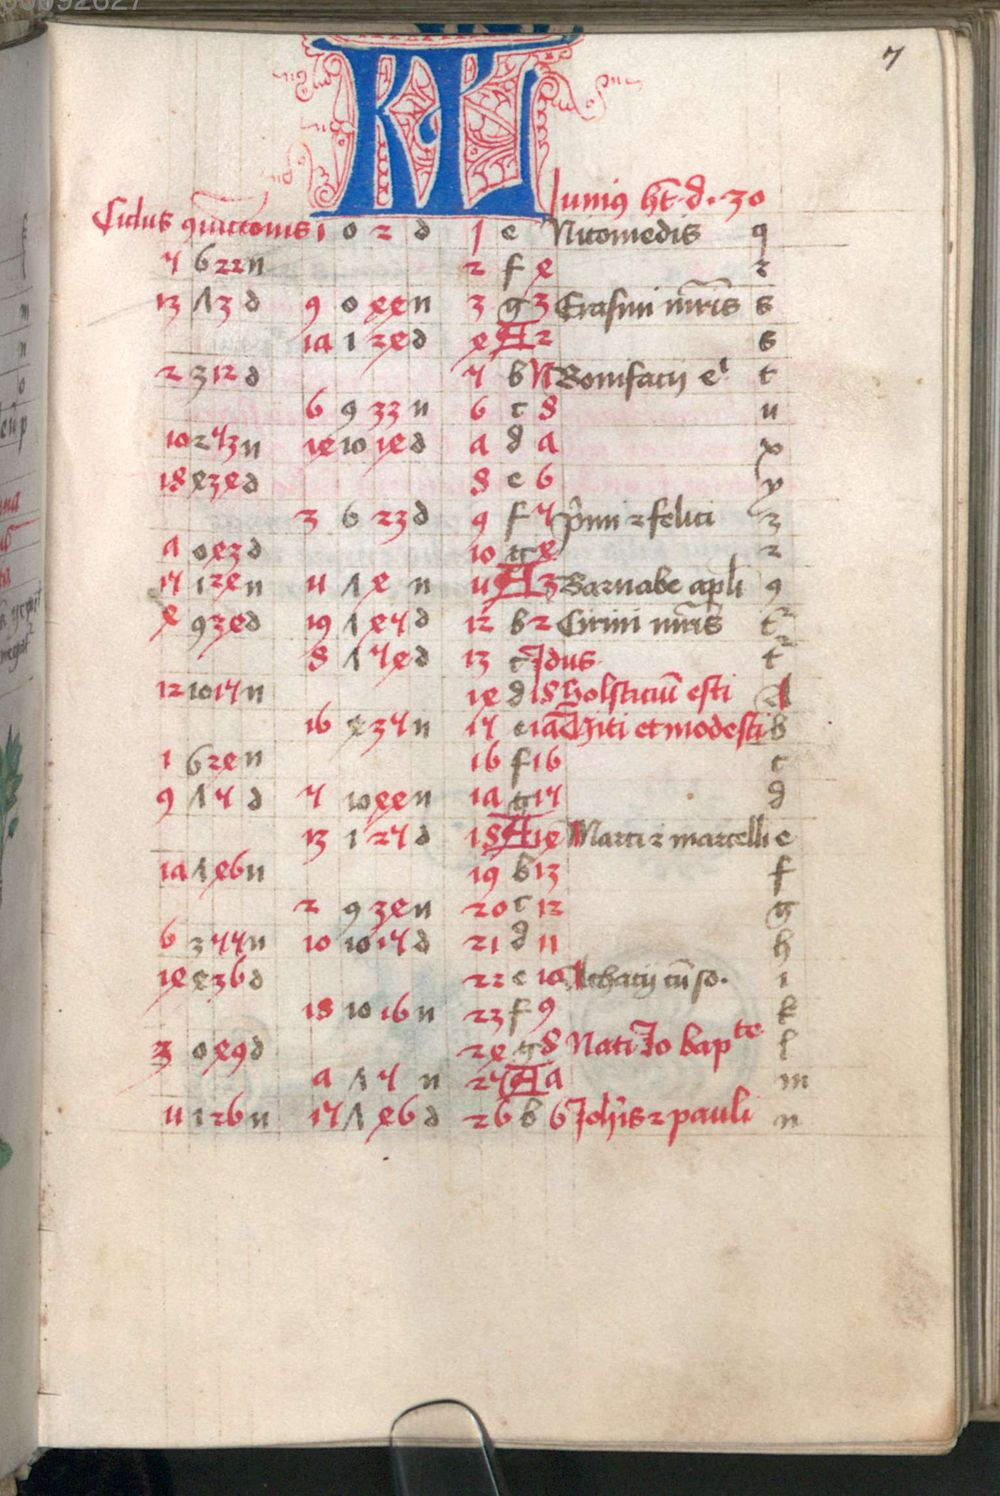 7
KL
Junius ht d. 30
Ciclus coniunctionis 1 0 2 d 1 e Nicomedis q
5 6 22 n 2 f 4 r
13 Λ 3 d 9 0 44 n 3 g 3 Erasmi mris s
17 1 24 d 4 A 2 s
2 3 12 d 5 b N Bonifacij et t
6 9 33 n 6 c 8 u
10 2 53 n 14 10 14 d 7 d 7 x
18 4 34 d 8 e 6 y
3 6 23 d 9 f 5 Pmi 2 felici z
7 0 43 d 10 g 4 2
15 1 24 n 11 Λ 4 n 11 A 3 Barnabe apli 9
4 9 34 d 19 Λ 45 d 12 b 2 Cirini mris t
8 Λ 54 d 13 c Idus t
12 10 15 n 14 d 18 Solsticiu esti A
16 4 35 n 15 e 17 Viti et modesti b
1 6 24 n 16 f 16 c
9 Λ 5 d 5 10 44 n 17 g 15 d
13 1 25 d 18 A 14 Marci 2 marcelli e
17 Λ 46 n 19 b 13 f
2 9 34 n 20 c 12 g
6 3 55 n 10 10 15 d 21 d 11 h
14 4 36 d 22 e 10 Achacij cu so. i
18 10 16 n 23 f 9 k
3 0 49 d 24 g 8 Nati Jo bapte l
7 Λ 5 n 25 A 7 m
11 1 26 n 15 Λ 46 d 26 b 6 Johis 2 pauli n